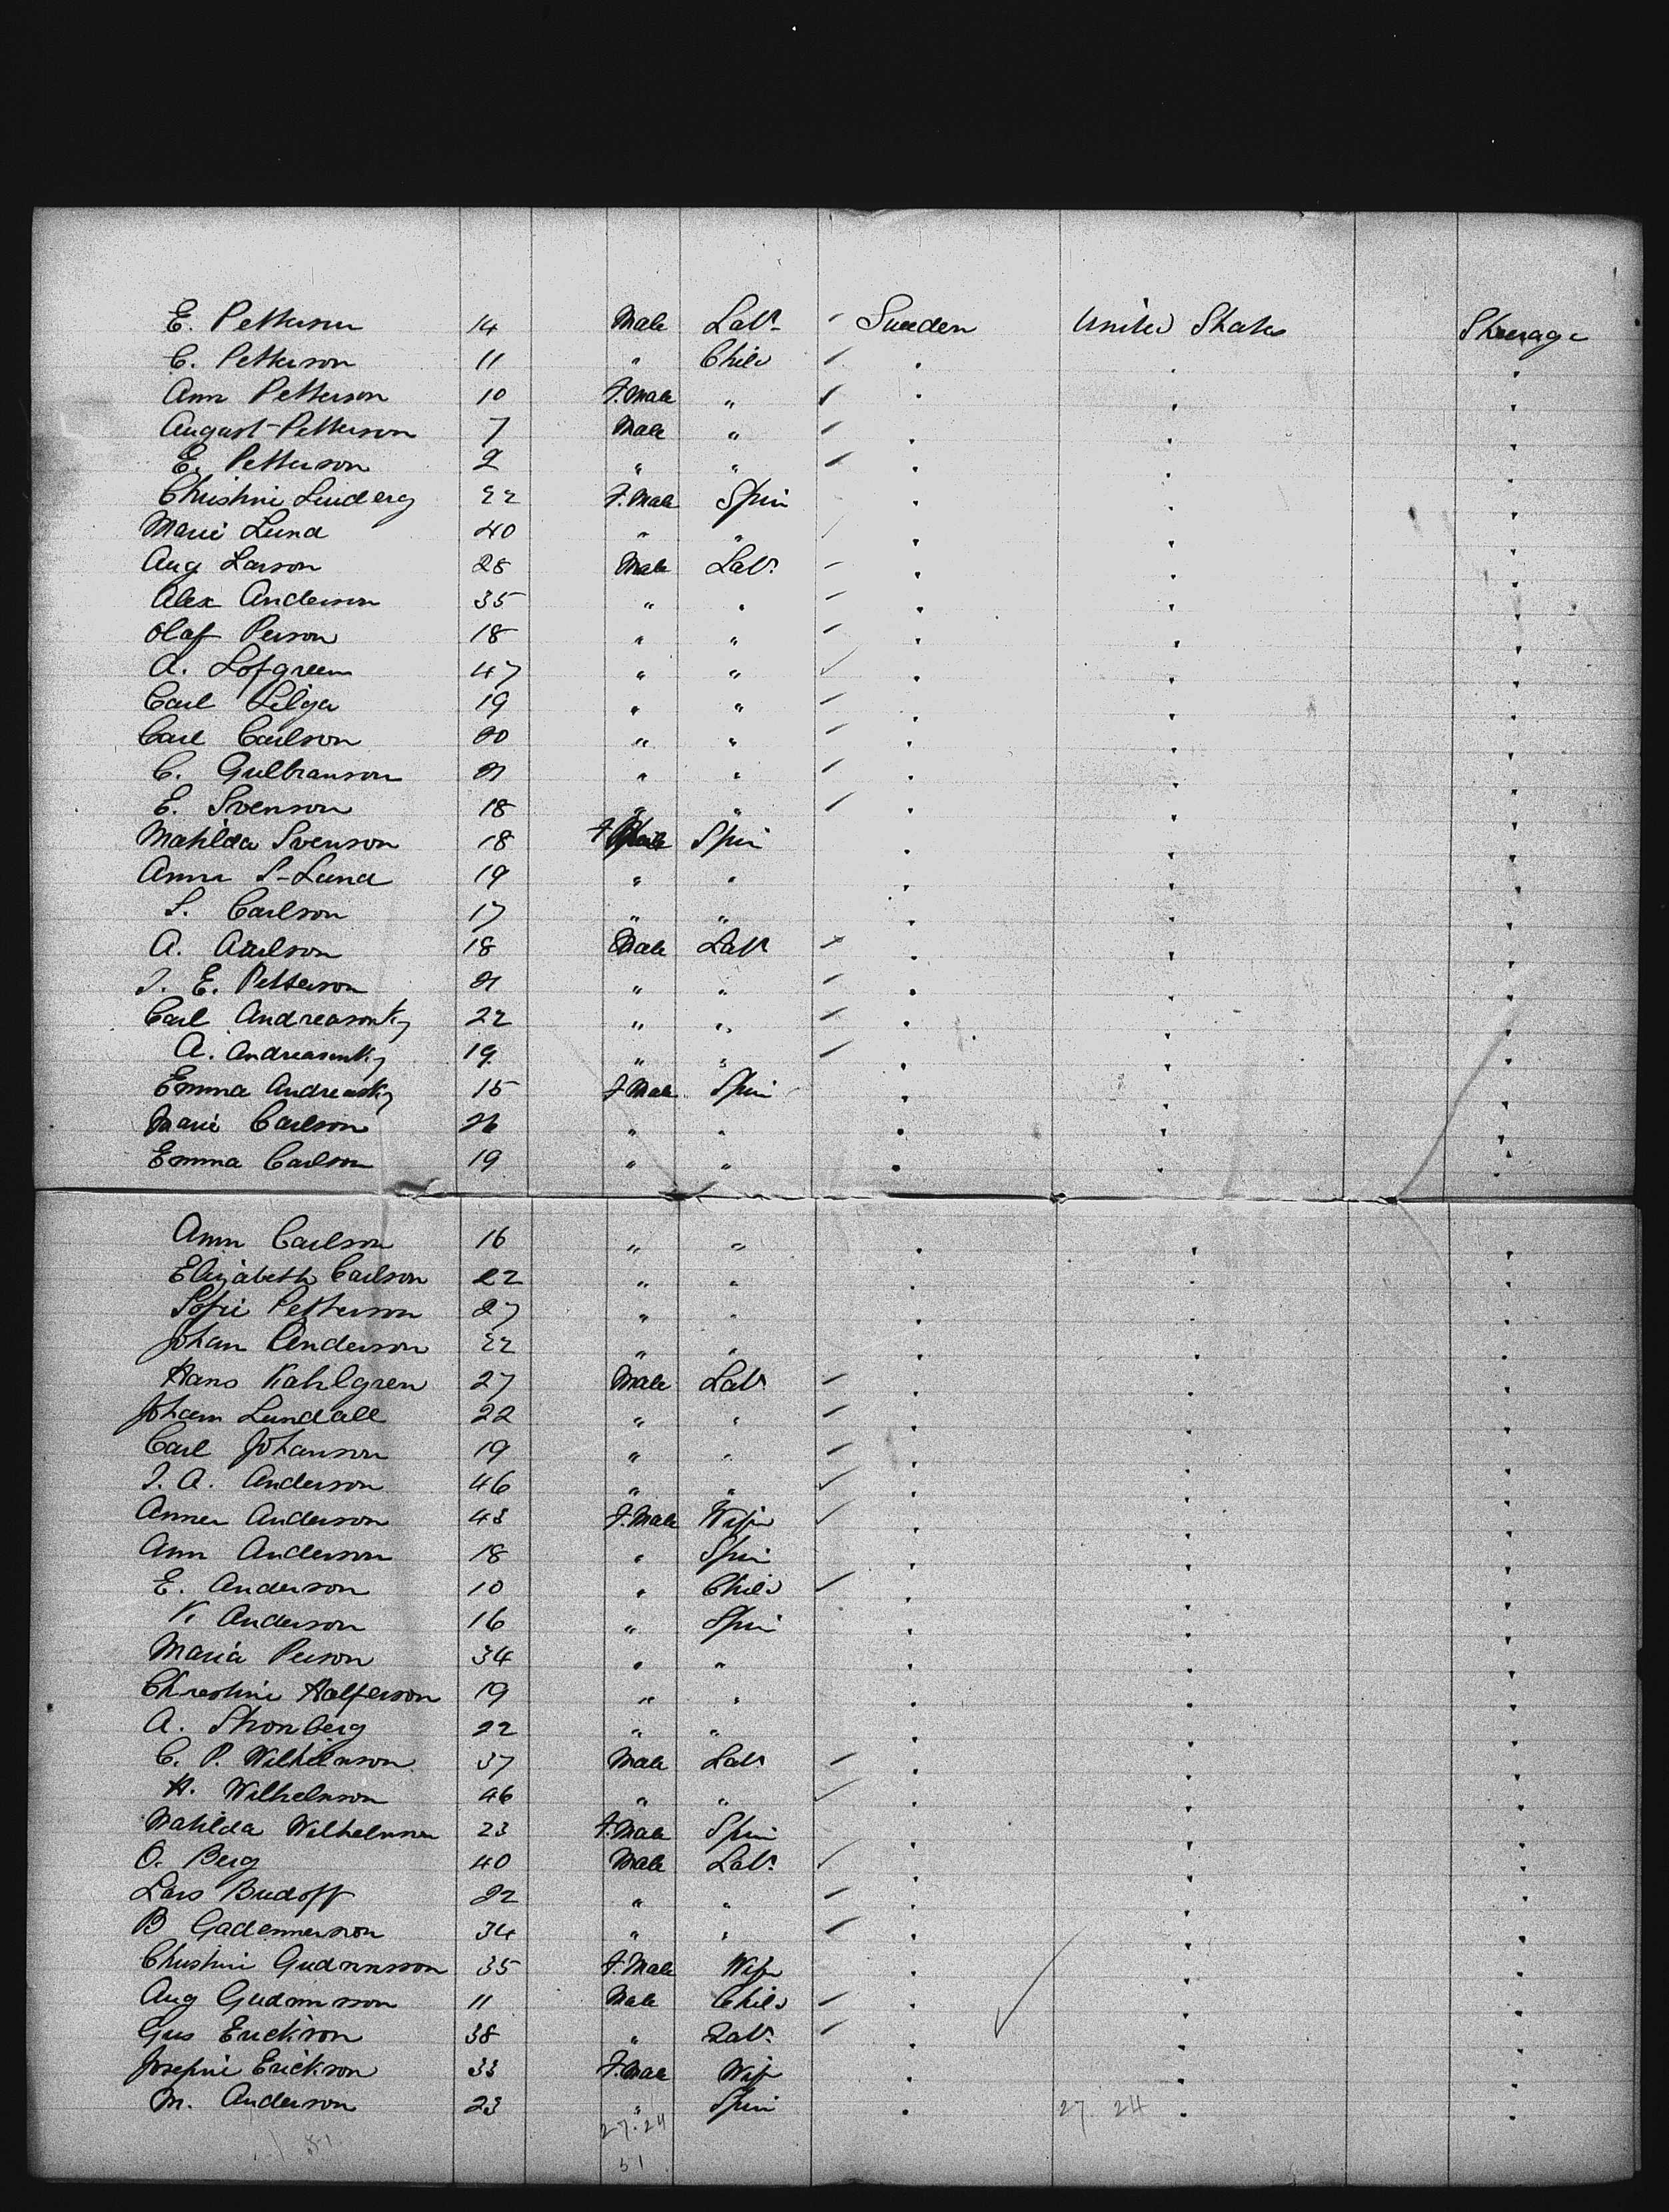 E. Petterson 14 Male Labr Sweden United States Steerage
C. Petterson 11 " Child " " "
Ann Petterson 10 F.Male " " " "
August Petterson 7 Male " " " "
E. Petterson 2 " " " " "
Christine Linderg 22 F.Male Spin " " "
Marie Lund 40 " " " " "
Aug Larson 28 Male Labr " " "
Alex Anderson 35 " " " " "
Olaf Person 18 " " " " "
A. Lofgreen 47 " " " " "
Carl Lilga 19 " " " " "
Carl Carlson 20 " " " " "
C. Gulbranson 21 " " " " "
E. Svenson 18 " " " " "
Mahilda Svenson 18 F Male Spin " " "
Anna S-Lund 19 " " " " "
S. Carlson 17 " " " " "
A. Aarlson 18 Male Labr " " "
J. E. Petterson 21 " " " " "
Carl Andreasonky 22 " " " " "
A. Andreasonky 19 " " " " "
Emma Andreasky 15 F Male Spin " " "
Marie Carlson 26 " " " " "
Emma Carlson 19 " " " " "
Ann Carlson 16 " " " " "
Elizabeth Carlson 22 " " " " "
Sofie Petterson 27 " " " " "
Johan Anderson 22 " " " " "
Hans Kahlgren 27 Male Labr " " "
Johan Lundall 22 " " " " "
Carl Johanson 19 " " " " "
J. A. Anderson 46 " " " " "
Anner Anderson 43 F.Male Wife " " "
Ann Anderson 18 " Spin " " "
E. Anderson 10 " Child " " "
K. Anderson 16 " Spin " " "
Maria Person 34 " " " " "
Chrestine Halferson 19 " " " " "
A. Stromberg 22 " " " " "
C. P. Wilhelmson 37 Male Labr " " "
H. Wilhelmson 46 " " " " "
Mahilda Wilhelmson 23 F.Male Spin " " "
O. Berg 40 Male Labr " " "
Lars Budoff 22 " " " " "
B Gademerson 34 " " " " "
Christine Gudmnsson 35 F.Male Wife " " "
Aug Gudmnsson 11 Male Child " " "
Gus Erickson 38 " Labr " " "
Josefine Erickson 33 F.Male Wife " " "
M. Anderson 23 " Spin " " "
27.24 27. 24
51